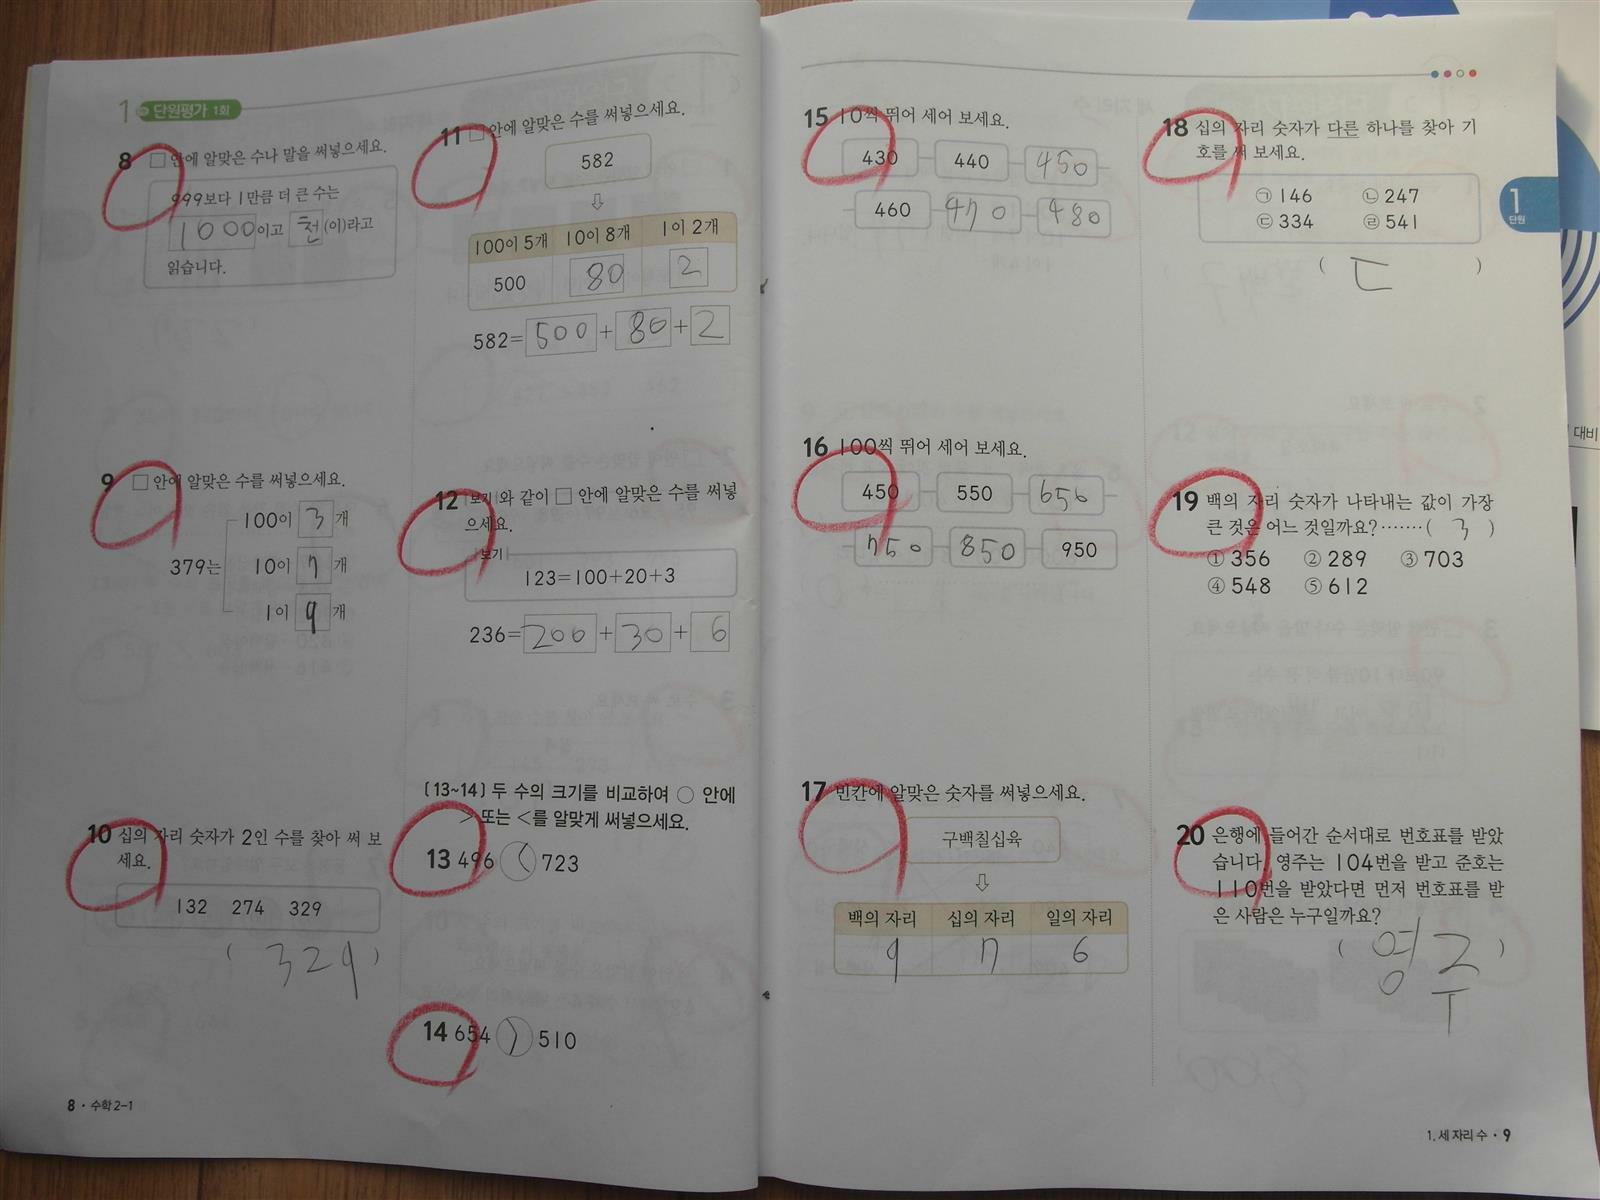 1 단원평가 1회
8 □ 안에 알맞은 수나 말을 써넣으세요.
999보다 1만큼 더 큰 수는
1000이고 천(이)라고
읽습니다.
9 □ 안에 알맞은 수를 써넣으세요.
100이 3개
379는 10이 7개
1이 9개
10 십의 자리 숫자가 2인 수를 찾아 써 보
세요.
132 274 329
( 329 )
11 □ 안에 알맞은 수를 써넣으세요.
582
⇩
100이 5개 10이 8개 1이 2개
500 80 2
582=500+80+2
12 |보기|와 같이 □ 안에 알맞은 수를 써넣
으세요.
|보기|
123=100+20+3
236=200+30+6
[13~14] 두 수의 크기를 비교하여 ○ 안에
> 또는 <를 알맞게 써넣으세요.
13 496 < 723
14 654 > 510
8 · 수학 2-1
15 10씩 뛰어 세어 보세요.
430 440 450
460 470 480
16 100씩 뛰어 세어 보세요.
450 550 650
750 850 950
17 빈칸에 알맞은 숫자를 써넣으세요.
구백칠십육
⇩
백의 자리 십의 자리 일의 자리
9 7 6
18 십의 자리 숫자가 다른 하나를 찾아 기
호를 써 보세요.
㉠ 146 ㉡ 247
㉢ 334 ㉣ 541
( ㄷ )
19 백의 자리 숫자가 나타내는 값이 가장
큰 것은 어느 것일까요?·······( 3 )
① 356 ② 289 ③ 703
④ 548 ⑤ 612
20 은행에 들어간 순서대로 번호표를 받았
습니다. 영주는 104번을 받고 준호는
110번을 받았다면 먼저 번호표를 받
은 사람은 누구일까요?
( 영주 )
1
단원
대비
1. 세 자리 수 · 9